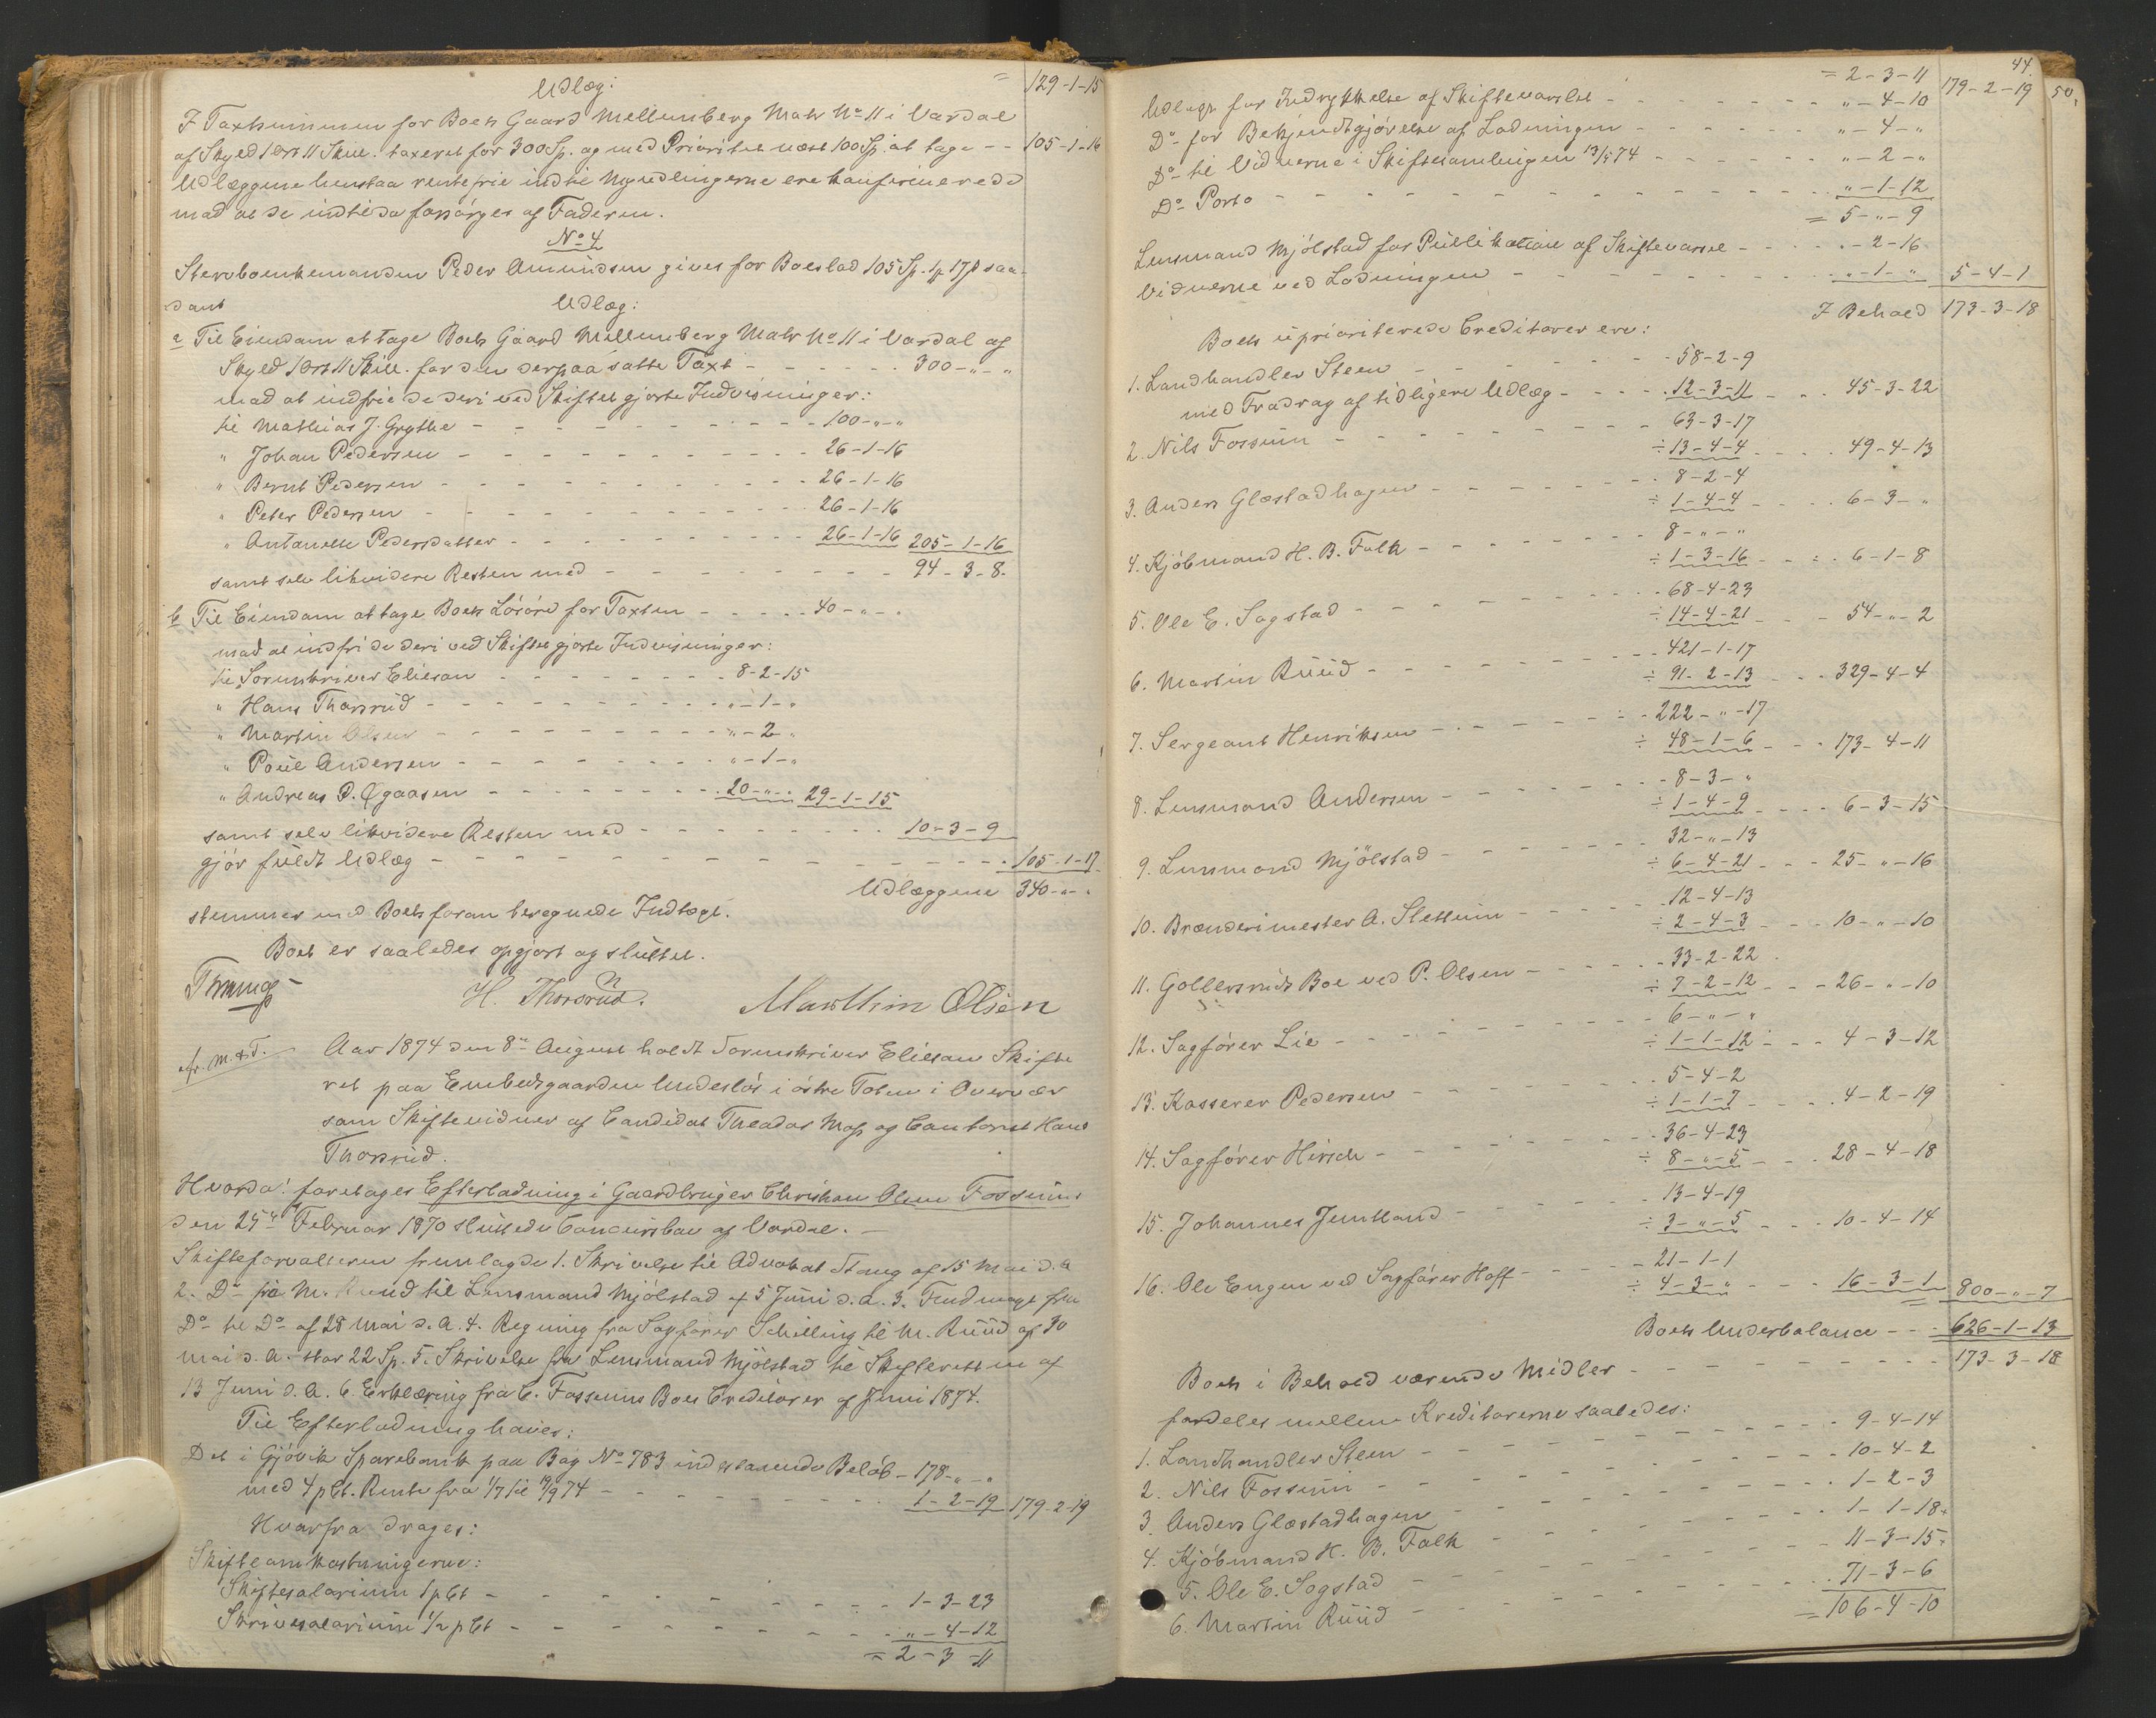 Udlæg: = 129-1-15
I Taxtsummen for Boets Gaard Mellumberg Matr No 11 i Vardal
af Skyld 1 Ort 11 Skill. taxeret for 300 Sp. og med Prioritet næst 100 Sp. at tage -- 105-1-16
Udlæggene henstaa rentefrie indtil Myndlingerne ere konfirmerede
mod at de indtil da forsørges af Faderen.
No 4
Stervboenkemanden Peder Amundsen gives for Boeslod 105 Sp. 1 17 saa-
dant
Udlæg:
a Til Eiendom at tage Boets Gaard Mellumberg Matr No 11 i Vardal af
Skyld 1 Ort 11 Skill. for den derpaa satte Taxt - - - - - 300-"-"
mod at indfrie de deri ved Skiftet gjorte Indvisninger:
til Mathias J. Grythe - - - - - 100-"-"
" Johan Pedersen - - - - - 26-1-16
" Bernt Pedersen - - - - - 26-1-16
" Peter Pedersen - - - - - 26-1-16
" Antonette Pedersdatter - - - - - 26-1-16 205-1-16
samt selv likvidere Resten med - - - - - 94-3-8.
b Til Eiendom at tage Boets Løsøre for Taxten - - - - 40-"-"
mod at indfri de deri ved Skiftet gjorte Indvisninger:
til Sorenskriver Elieson - - - - - 8-2-15
" Hans Thorsrud - - - - - "-1-"
" Martin Olsen - - - - - "-2-"
" Poul Andersen - - - - - "-1-"
" Andreas P. Øgaasen - - - - - 20-"-" 29-1-15
samt selv likvidere Resten med - - - - - 10-3-9
gjør fuldt Udlæg - - - - - 105-1-17
Udlæggene 340-"-"
stemmer med Boets foran beregnede Indtægt.
Boet er saaledes opgjort og sluttet.
H. Thorsrud. Marthin Olsen
Aar 1874 den 8de August holdt Sorenskriver Elieson Skifte
ret paa Embedsgaarden Undesløs i østre Toten i Overvær
som Skiftevidner af Candidat Theodor Moss og Contorist Hans
Thorsrud.
Hvorda! foretages Efterlodning i Gaardbruger Christian Olsen Fossums
den 25de Februar 1870 sluttede Concursbo af Vardal. -
Skifteforvalteren fremlagde 1. Skrivelse til Advokat Stang af 15 Mai d. A.
2. Do fra M. Ruud til Lensmand Mjølstad af 5 Juni d. A. 3. Fuldmagt fra
Do til Do af 28 Mai d. A. 4. Regning fra Sagfører Schilling til M. Ruud af 30
Mai d. A. stor 22 Sp. 5. Skrivelse fra Lensmand Mjølstad til Skifteretten af
13 Juni d. A. 6. Erklæring fra C. Fossums Boes Creditorer af Juni 1874.
Til Efterlodning haves:
Det i Gjøvik Sparebank paa Bog No 783 indestaaende Beløb - 178-"-"
med 4 pCt. Rente fra 1/7 til 19/9 74 - - - - - 1-2-19 179-2-19
Hvorfra drages:
Skifteomkostningerne:
Skiftesalarium 1 pCt - - - - - 1-3-23
Skriversalarium 1/2 pCt - - - - - "-4-12
= 2-3-11
44.
50.
= 2-3-11 179-2-19
Udlagt for Indrykkelse af Skiftevarslet - - - - - "-4-10
Do for Bekjendtgjørelse af Lodningen - - - - - "-4-"
Do til Vidnerne i Skiftesamlingen 74 - - - - - "-2-"
Do Porto - - - - - "-1-12
= 5-"-9
Lensmand Mjølstad for Publikation af Skiftevarsel - - - - - "-2-16
Vidnerne ved Lodningen - - - - - "-1-" 5-4-1
I Behold 173-3-18
Boets uprioriterede Creditorer ere:
1. Landhandler Steen - - - - - 58-2-9
med Fradrag af tidligere Udlæg - - - - 12-3-11 - - 45-3-22
2. Nils Fossum - - - - - 63-3-17
÷ 13-4-4 - - - 49-4-13
3. Anders Glæstadhagen - - - - - 8-2-4
÷ 1-4-4 - - - 6-3-"
4. Kjøbmand H. B. Falk - - - - - 8-"-"
÷ 1-3-16 - - - 6-1-8
5. Ole E. Sogstad - - - - - 68-4-23
÷ 14-4-21 - - - 54-"-2
6. Martin Ruud - - - - - 421-1-17
÷ 91-2-13 - - - 329-4-4
7. Sergeant Henriksen - - - - - 222-"-17
÷ 48-1-6 - - - 173-4-11
8. Lensmand Andersen - - - - - 8-3-"
÷ 1-4-9 - - - 6-3-15
9. Lensmand Mjölstad - - - - - 32-"-13
÷ 6-4-21 - - - 25-"-16
10. Brænderimester A. Slettum - - - - - 12-4-13
÷ 2-4-3 - - - 10-"-10
11. Gollersruds Boe ved P. Olsen - - - - - 33-2-22
÷ 7-2-12 - - - 26-"-10
12. Sagfører Lie - - - - - 6-"-"
÷ 1-1-12 - - - 4-3-12
13. Kasserer Pedersen - - - - - 5-4-2
÷ 1-1-7 - - - 4-2-19
14. Sagfører Hirsch - - - - - 36-4-23
÷ 8-"-5 - - - 28-4-18
15. Johannes Jemtland - - - - - 13-4-19
÷ 3-"-5 - - - 10-4-14
16. Ole Engen ved Sagfører Hoff - - - - - 21-1-1
÷ 4-3-" - - - 16-3-1 800-"-7
Boets Underbalance - - - 626-1-13
Boets i Behold værende Midler - - - - - 173-3-18
fordeles mellem Kreditorerne saaledes:
1. Landhandler Steen - - - - - 9-4-14
2. Nils Fossum - - - - - 10-4-2
3. Anders Glæstadhagen - - - - - 1-2-3
4. Kjøbmand H. B. Falk - - - - - 1-1-18
5. Ole E. Sogstad - - - - - 11-3-15
6. Martin Ruud - - - - - 71-3-6
= 106-4-10